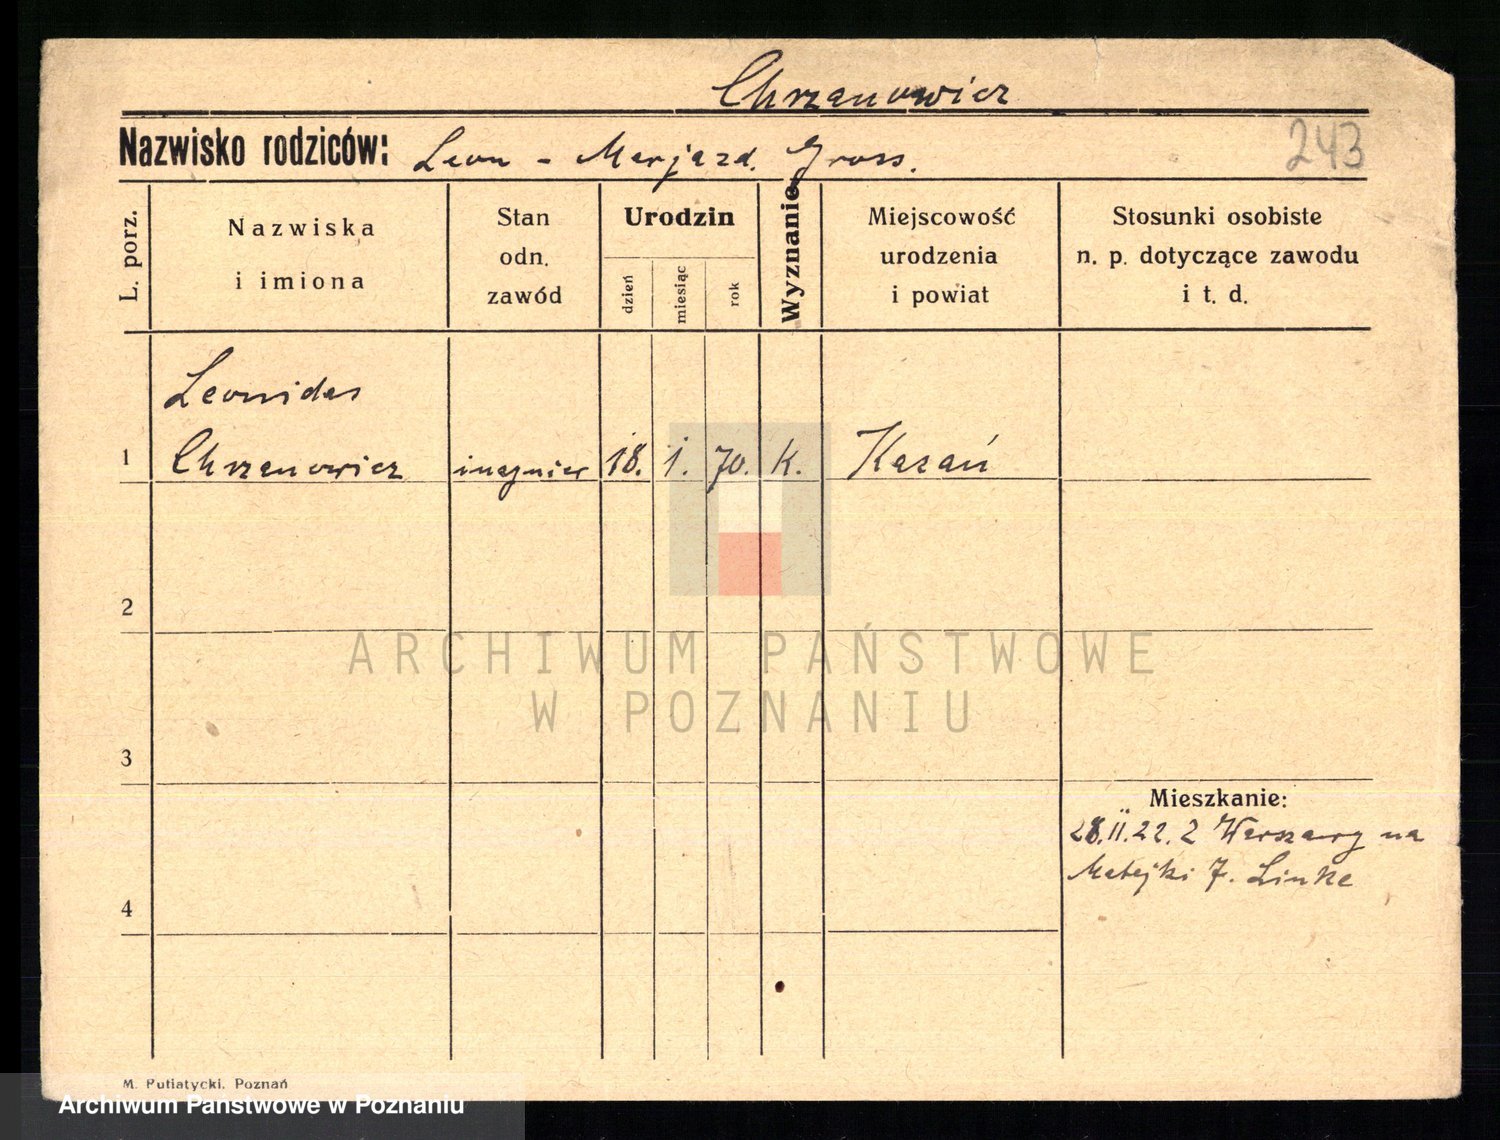 Chrzanowicz
Nazwisko rodziców: Leon - Marja zd. Gross.
243
L. porz.
Nazwiska
i imiona
Stan
odn.
zawód
Urodzin
dzień
miesiąc
rok
Wyznanie
Miejscowość
urodzenia
i powiat
Stosunki osobiste
n. p. dotyczące zawodu
i t. d.
Leonidas
1 Chrzanowicz inżynier 18. i. 70. k. Kazań
2
ARCHIWUM PAŃSTWOWE
W POZNANIU
3
Mieszkanie:
28.II.22. z Warszawy na
Matejki 7. Linke
4
M. Putiatycki, Poznań
Archiwum Państwowe w Poznaniu